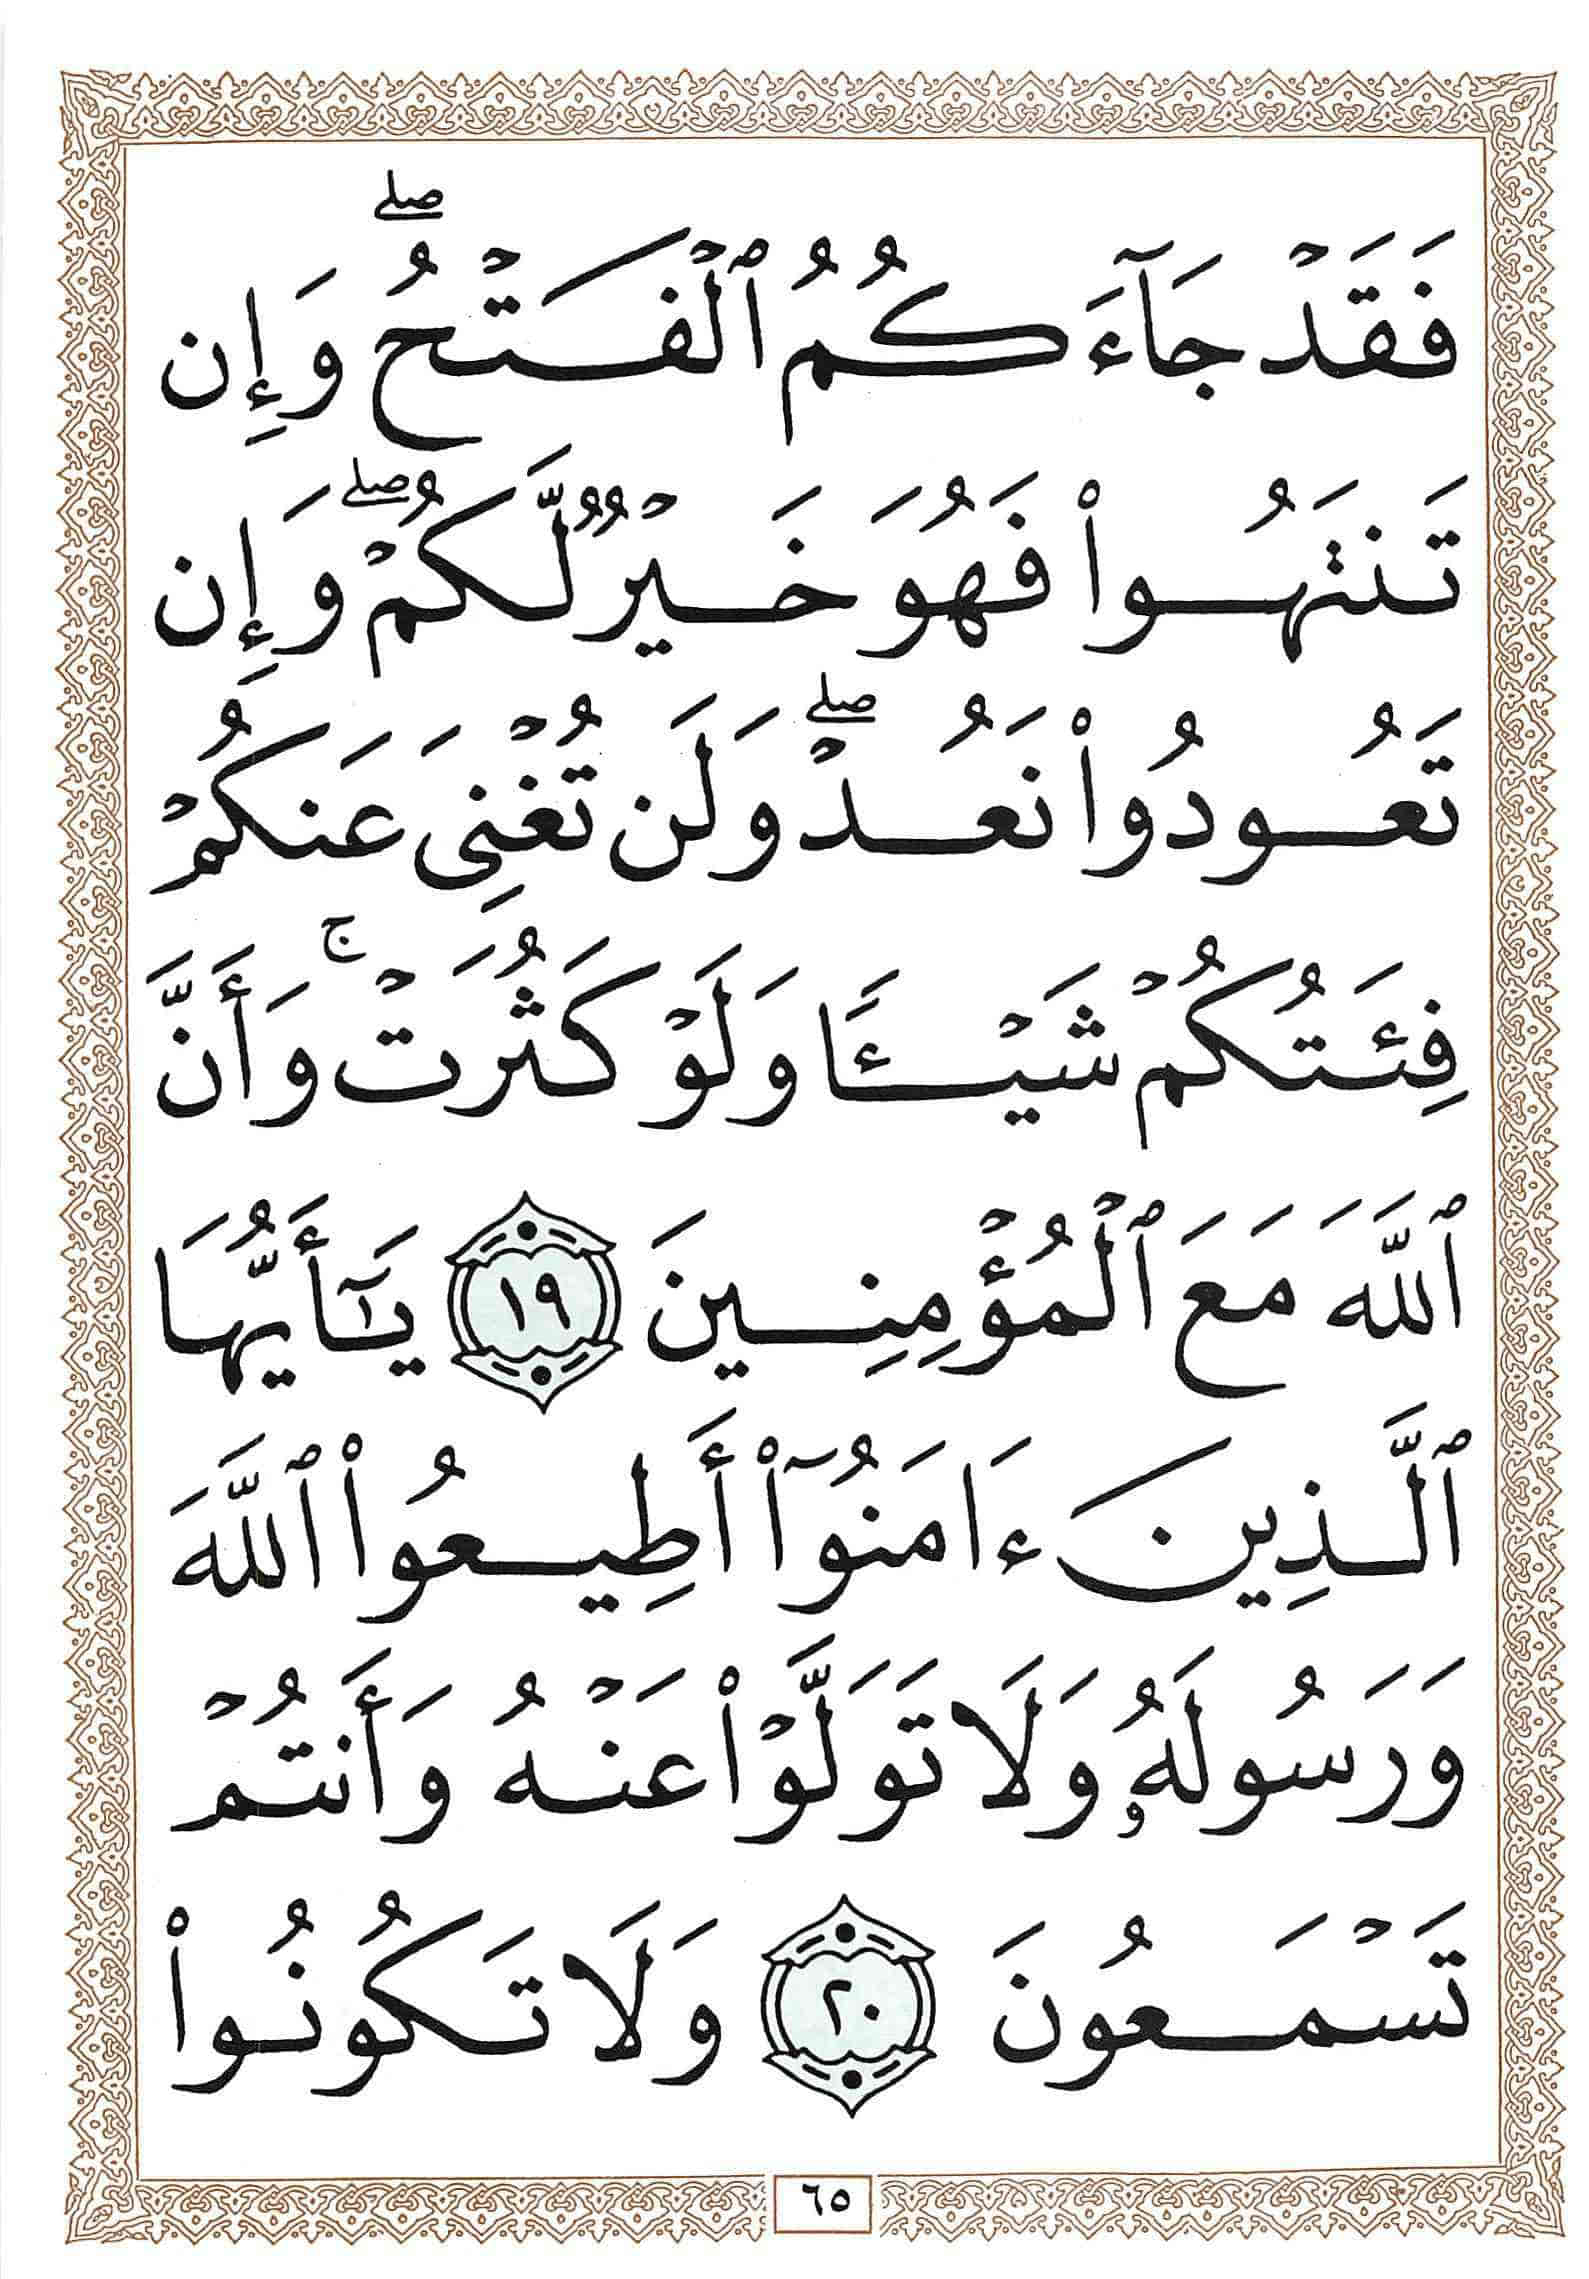 فَقَدْ جَآءَكُمُ ٱلْفَتْحُ ۖ وَإِن
تَنتَهُوا۟ فَهُوَ خَيْرٌ لَّكُمْ ۖ وَإِن
تَعُودُوا۟ نَعُدْ ۖ وَلَن تُغْنِىَ عَنكُمْ
فِئَتُكُمْ شَيْـًٔا وَلَوْ كَثُرَتْ ۚ وَأَنَّ
ٱللَّهَ مَعَ ٱلْمُؤْمِنِينَ ١٩ يَـٰٓأَيُّهَا
ٱلَّذِينَ ءَامَنُوٓا۟ أَطِيعُوا۟ ٱللَّهَ
وَرَسُولَهُۥ وَلَا تَوَلَّوْا۟ عَنْهُ وَأَنتُمْ
تَسْمَعُونَ ٢٠ وَلَا تَكُونُوا۟
٦٥